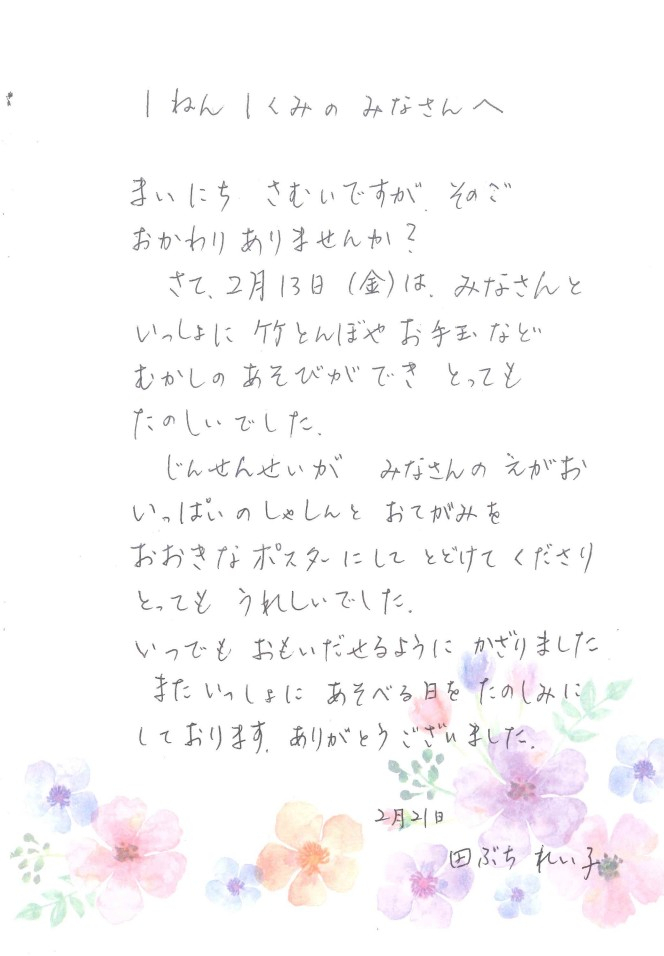 1ねん1くみの みなさんへ
まいにち さむいですが、そのご
おかわりありませんか?
さて、2月13日(金)は、みなさんと
いっしょに 竹とんぼや お手玉など
むかしの あそびが でき とっても
たのしいでした。
じんせんせいが みなさんの えがお
いっぱいの しゃしんと おてがみを
おおきな ポスターにして とどけて くださり
とっても うれしいでした。
いつでも おもいだせるように かざりました
また いっしょに あそべる日を たのしみに
しております。ありがとうございました。
2月21日
田ぶち れい子